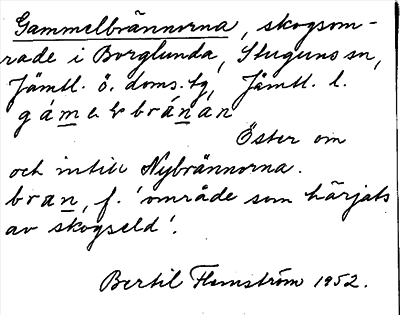 Gammelbrännorna, skogsom-
råde i Borglunda, Stuguns sn,
Jämtl. ö. doms.tg, Jämtl. l.
Öster om
och intill Nybrännorna.
bran, f. 'område som härjats
av skogseld'.
Bertil Flemström 1952.